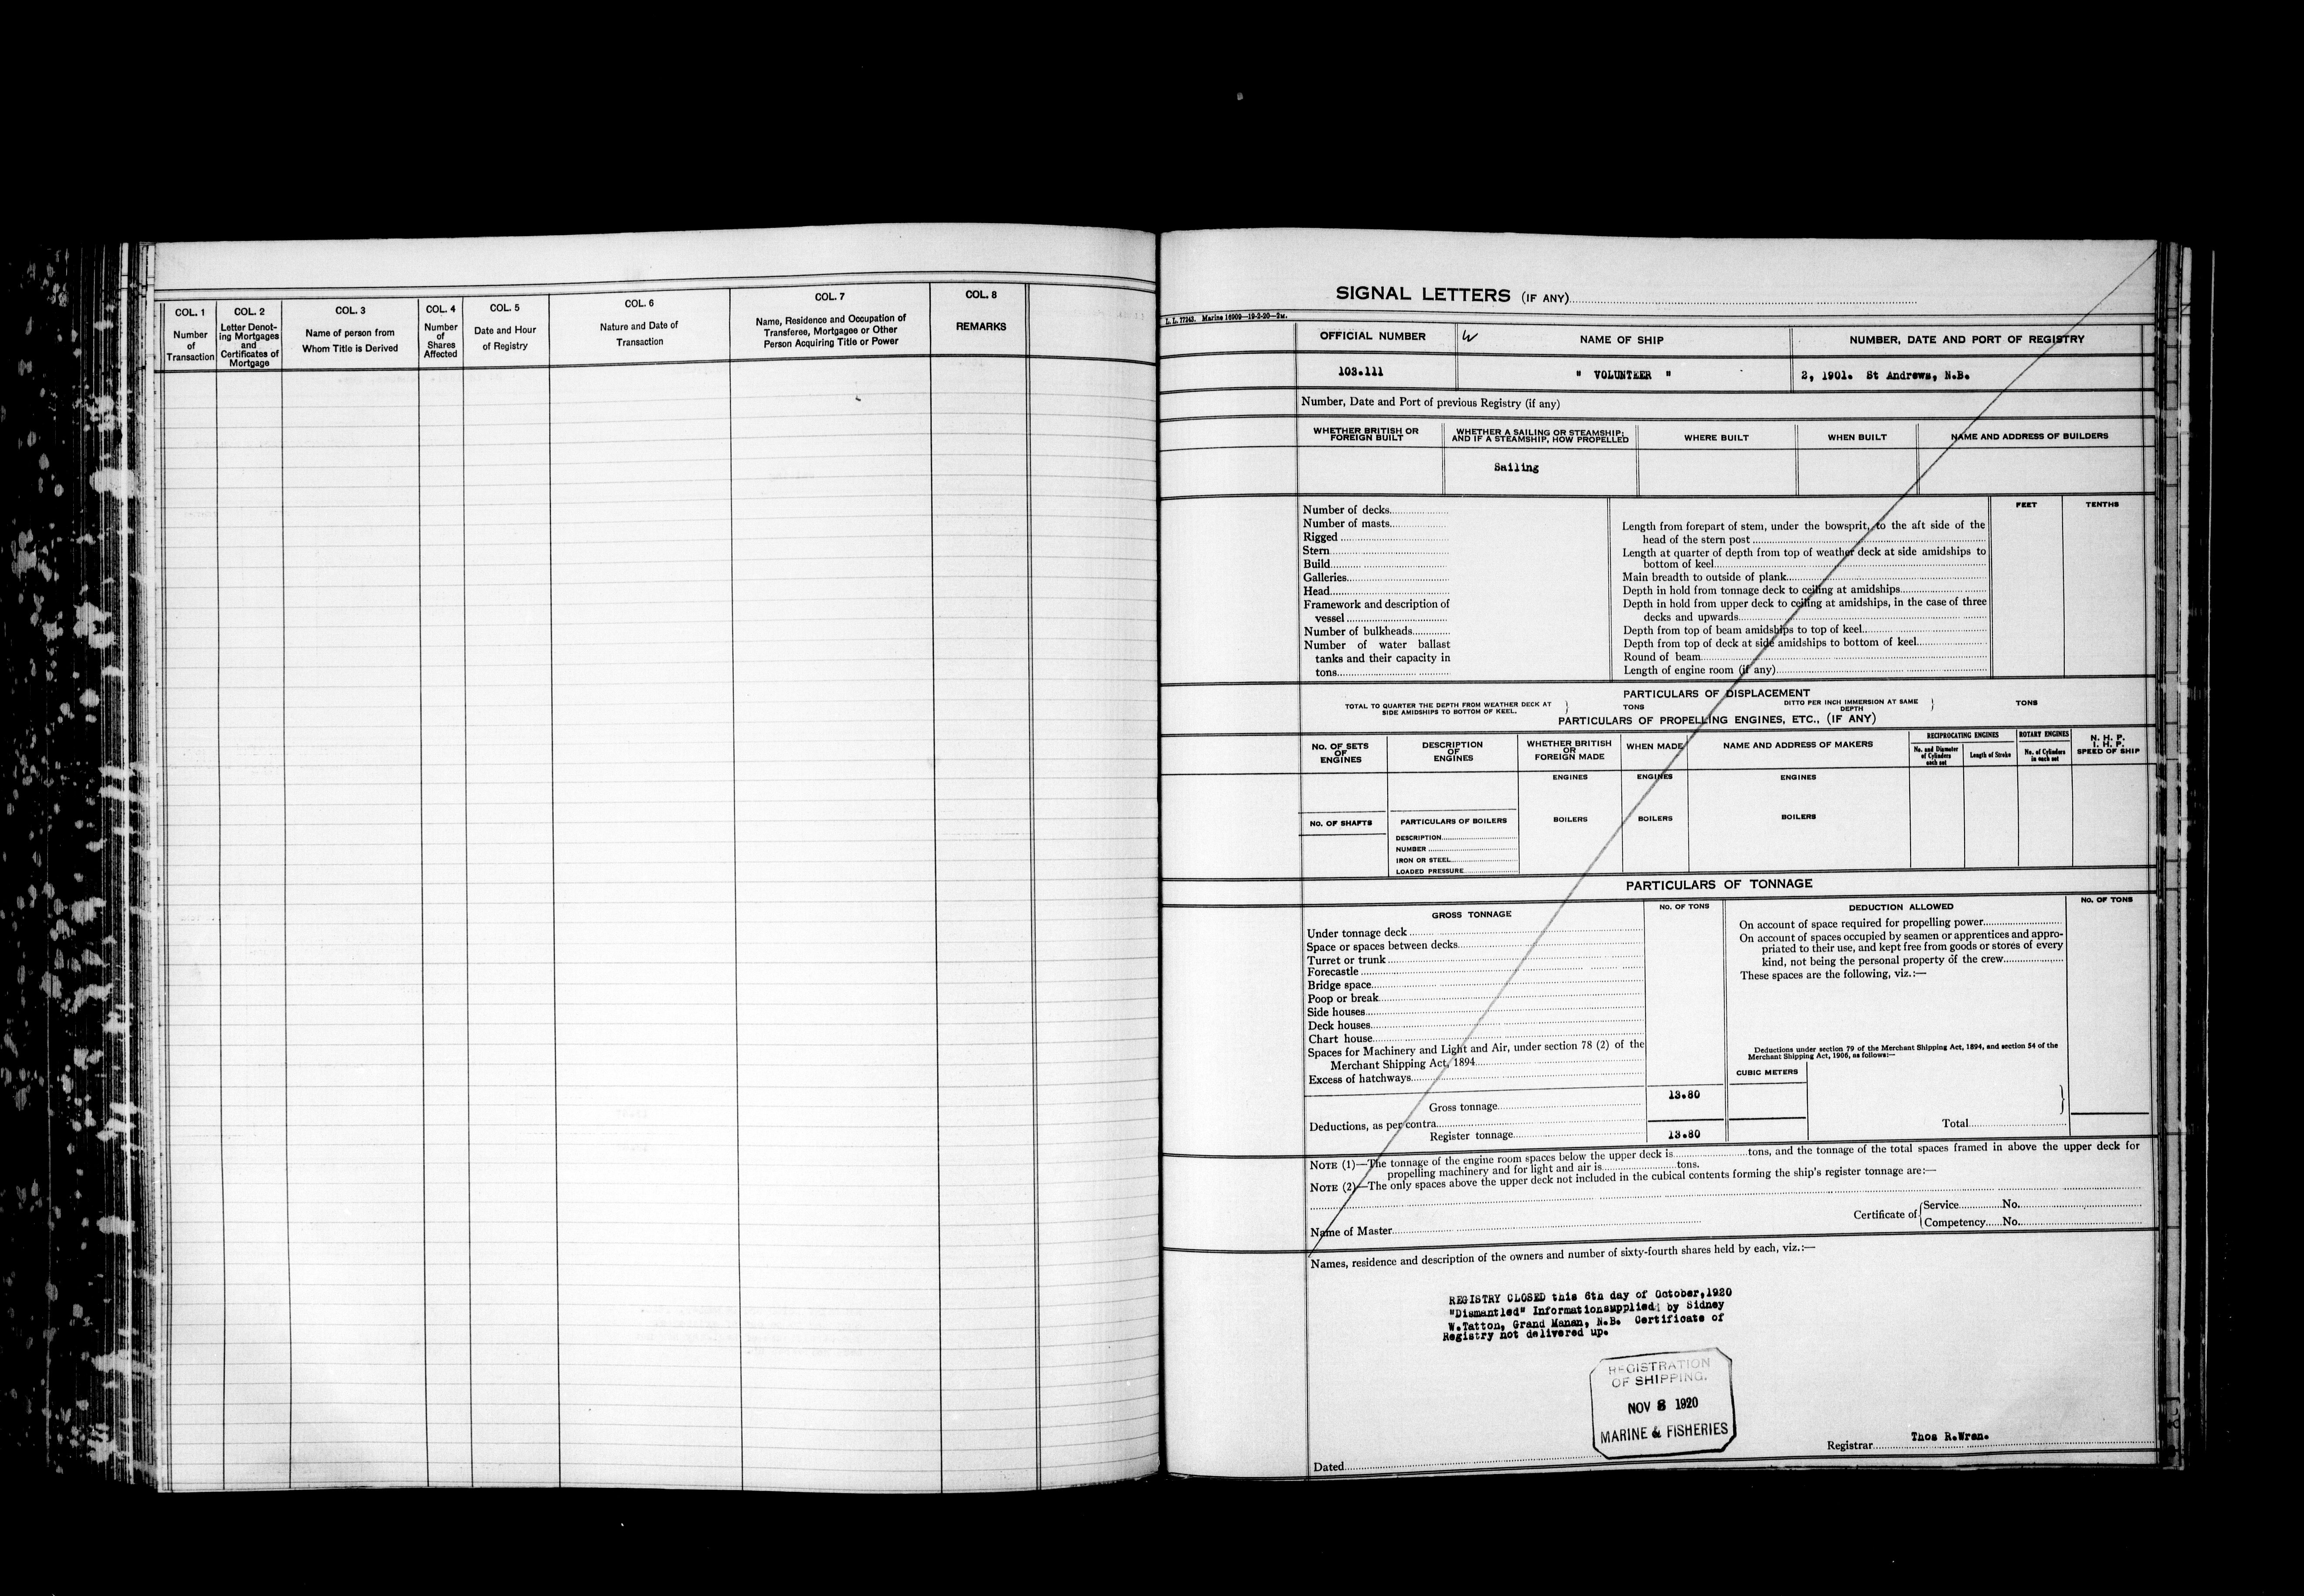 COL. 1
Number
of
Transaction
COL. 2
Letter Denot-
ing Mortgages
and
Certificates of
Mortgage
COL. 3
Name of person from
Whom Title is Derived
COL. 4
Number
of
Shares
Affected
COL. 5
Date and Hour
of Registry
COL. 6
Nature and Date of
Transaction
COL. 7
Name, Residence and Occupation of
Transferee, Mortgagee or Other
Person Acquiring Title or Power
COL. 8
REMARKS
SIGNAL LETTERS (IF ANY)
L. L. 77243. Marine 16909—19-2-20—2M.
OFFICIAL NUMBER
W
NAME OF SHIP
NUMBER, DATE AND PORT OF REGISTRY
103.111
" VOLUNTEER "
2, 1901. St Andrews, N.B.
Number, Date and Port of previous Registry (if any)
WHETHER BRITISH OR
FOREIGN BUILT
WHETHER A SAILING OR STEAMSHIP;
AND IF A STEAMSHIP, HOW PROPELLED
WHERE BUILT
WHEN BUILT
NAME AND ADDRESS OF BUILDERS
Sailing
Number of decks
Number of masts
Rigged
Stern
Build
Galleries
Head
Framework and description of
vessel
Number of bulkheads
Number of water ballast
tanks and their capacity in
tons
FEET
TENTHS
Length from forepart of stem, under the bowsprit, to the aft side of the
head of the stern post
Length at quarter of depth from top of weather deck at side amidships to
bottom of keel
Main breadth to outside of plank
Depth in hold from tonnage deck to ceiling at amidships
Depth in hold from upper deck to ceiling at amidships, in the case of three
decks and upwards
Depth from top of beam amidships to top of keel
Depth from top of deck at side amidships to bottom of keel
Round of beam
Length of engine room (if any)
PARTICULARS OF DISPLACEMENT
TOTAL TO QUARTER THE DEPTH FROM WEATHER DECK AT
SIDE AMIDSHIPS TO BOTTOM OF KEEL.
TONS
DITTO PER INCH IMMERSION AT SAME
DEPTH
TONS
PARTICULARS OF PROPELLING ENGINES, ETC., (IF ANY)
No. OF SETS
OF
ENGINES
DESCRIPTION
OF
ENGINES
WHETHER BRITISH
OR
FOREIGN MADE
WHEN MADE
NAME AND ADDRESS OF MAKERS
RECIPROCATING ENGINES
No. and Diameter
of Cylinders
each set
Length of Stroke
ROTARY ENGINES
No. of Cylinders
in each set
N. H. P.
I. H. P.
SPEED OF SHIP
ENGINES
ENGINES
ENGINES
No. OF SHAFTS
PARTICULARS OF BOILERS
BOILERS
BOILERS
BOILERS
DESCRIPTION
NUMBER
IRON OR STEEL
LOADED PRESSURE
PARTICULARS OF TONNAGE
GROSS TONNAGE
No. OF TONS
DEDUCTION ALLOWED
No. OF TONS
Under tonnage deck
Space or spaces between decks
Turret or trunk
Forecastle
Bridge space
Poop or break
Side houses
Deck houses
Chart house
Spaces for Machinery and Light and Air, under section 78 (2) of the
Merchant Shipping Act, 1894
Excess of hatchways
Gross tonnage
13.80
Deductions, as per contra
Register tonnage
13.80
On account of space required for propelling power
On account of spaces occupied by seamen or apprentices and appro-
priated to their use, and kept free from goods or stores of every
kind, not being the personal property of the crew
These spaces are the following, viz.:—
Deductions under section 79 of the Merchant Shipping Act, 1894, and section 54 of the
Merchant Shipping Act, 1906, as follows:—
CUBIC METERS
Total
NOTE (1)—The tonnage of the engine room spaces below the upper deck is tons, and the tonnage of the total spaces framed in above the upper deck for
propelling machinery and for light and air is tons.
NOTE (2)—The only spaces above the upper deck not included in the cubical contents forming the ship's register tonnage are:—
Name of Master
Certificate of
Service No.
Competency No.
Names, residence and description of the owners and number of sixty-fourth shares held by each, viz.:—
REGISTRY CLOSED this 6th day of October,1920
"Dismantled" Informationsupplied by Sidney
W.Tatton, Grand Manan, N.B. Certificate of
Registry not delivered up.
REGISTRATION
OF SHIPPING.
NOV 8 1920
MARINE & FISHERIES
Registrar Thos R.Wren.
Dated